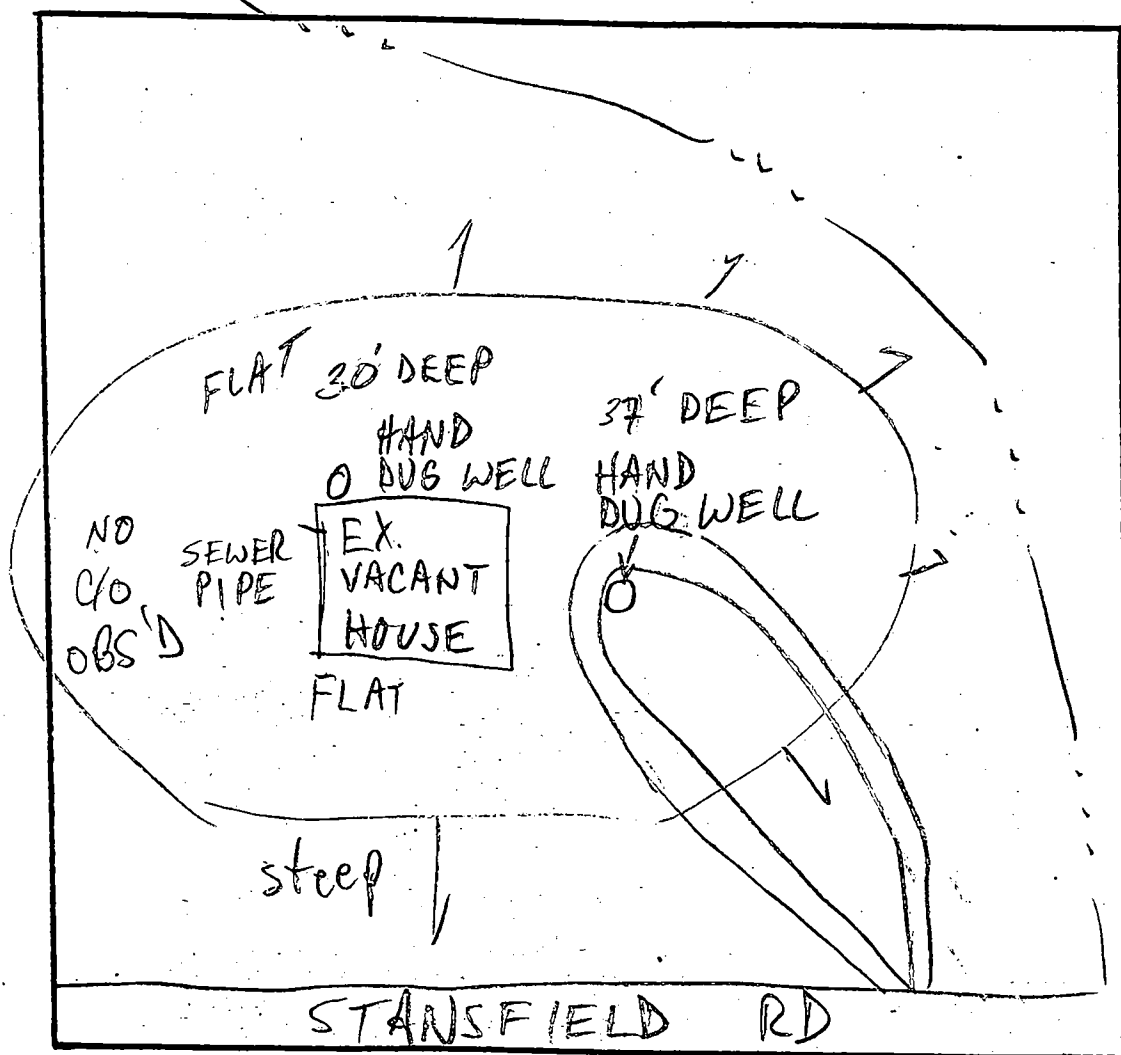 FLAT
30' DEEP
HAND
DUG WELL
37' DEEP
HAND
DUG WELL
NO
C/O
OBS'D
SEWER
PIPE
EX.
VACANT
HOUSE
FLAT
steep
STANSFIELD RD